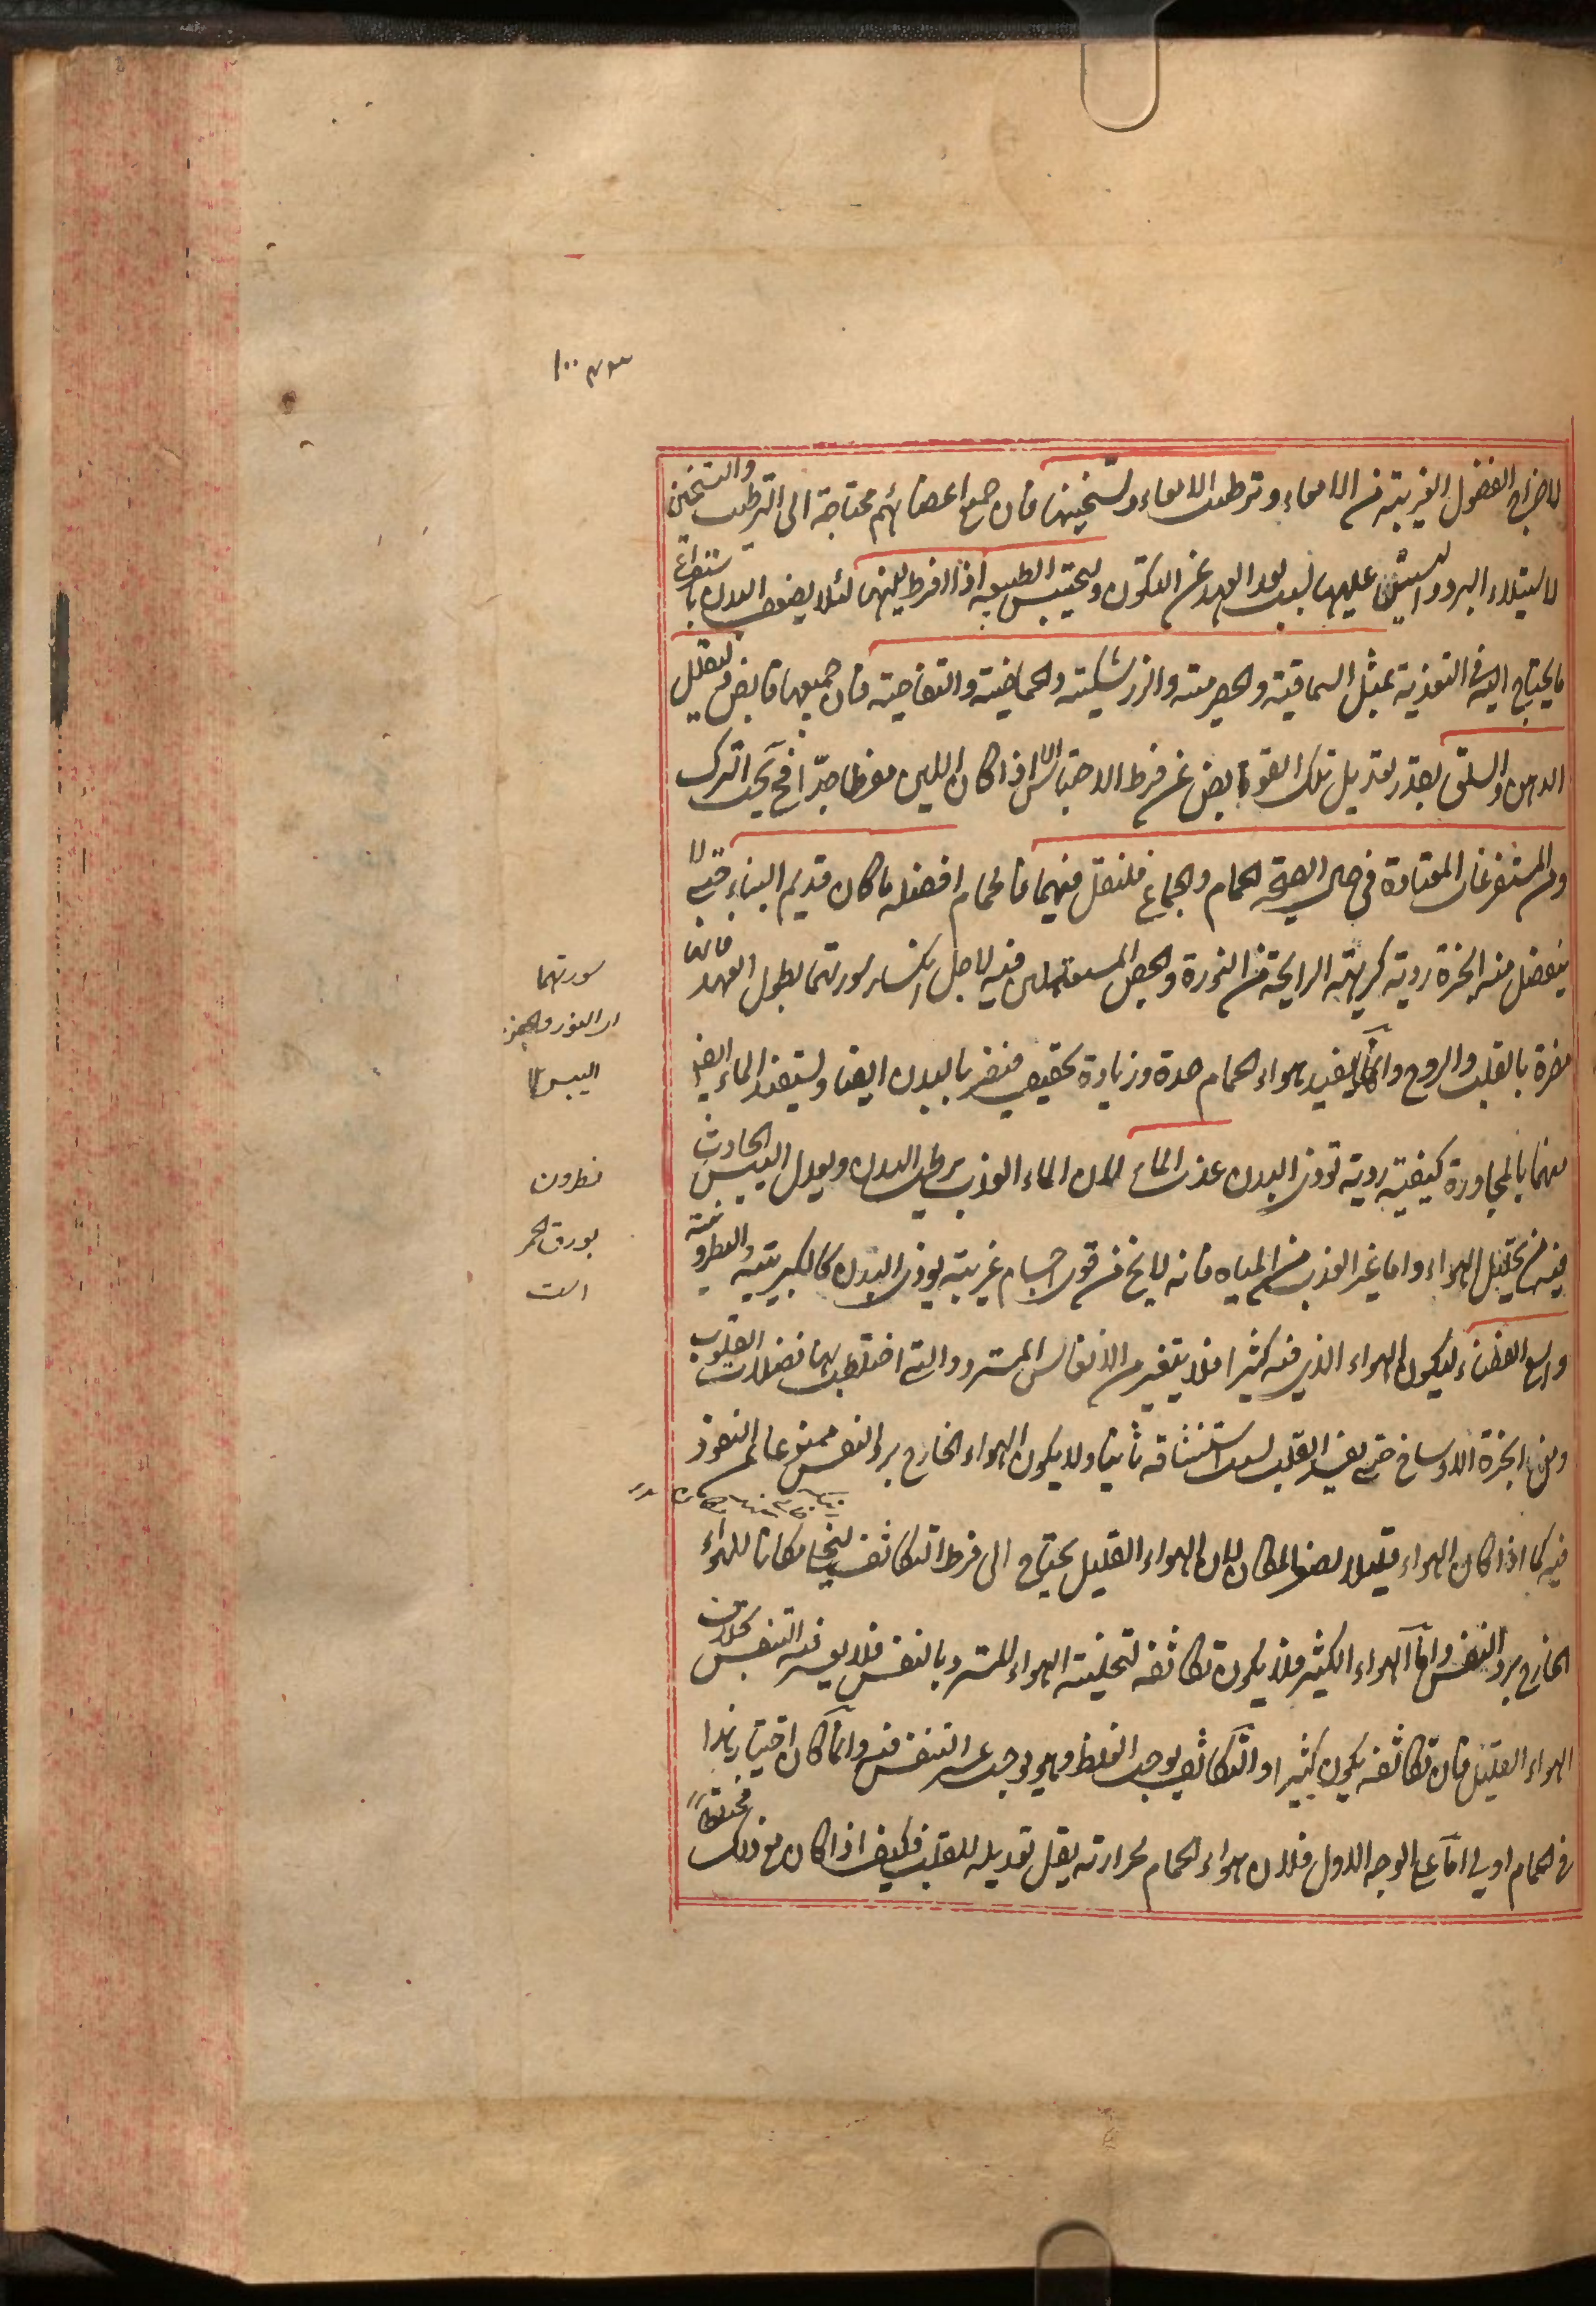 لاخراج الفضول الغريبة من الامعاء وترطيب الامعاء وتسخينها فان جميع اعضائهم محتاجة الى الترطيب والتسخين
لاستيلاء البرد واليبس عليها لسبب بعد العهد عن التكون ويحتبس الطبيعة اذا افرط لينها لئلا يضعف البدن باستفراغ
ما يحتاج اليه في التغذية بمثل السماقية والحصرمية والزرشكية والحماضية والتفاحية فان جميعها قابض فليقلل
الدهن والسلق بقدر تعديل تلك القوابض عن فرط الاحتباس الا اذا كان اللين مفرطا جدا فح يجب الترك
ومن المستفرغات المعتادة في حال الصحة الحمام والجماع فلنقل فيهما فالحمام افضله ما كان قديم البناء فحينئذ لا
ينفصل منه ابخرة ردية كريهة الرايحة من النورة والجص المستعملين فيه لاجل انكسار سورتهما بطول العهد فانها
مضرة بالقلب والروح وانها يفيد هواء الحمام حدة وزيادة تجفيف فيضر بالبدن ايضا ويستفيد الماء ايضا
منها بالمجاورة كيفية ردية توذى البدن عذب الماء لان الماء العذب يرطب البدن ويعدل اليبس الحادث
فيه من تحليل الهواء واما غير العذب من المياه فانه لا يخ من قوى اجسام غريبة يوذى البدن كالكبريتية والنطرونية
واسع الفضاء ليكون الهواء الذي فيه كثيرا فلا يتغير من الانفاس المستردة التي اختلطت بها فضلات القلوب
ومن ابخرة الاوساخ حتى يضر القلب لسبب استنشاقه ثانيا ولا يكون الهواء الخارج برد النفس ممنوعا عن النفوذ
فيه كما اذا كان الهواء قليلا لصغر المكان لان الهواء القليل يحتاج الى فرط التكاثف ليخلي مكانا للهواء
الخارج برد النفس واما الهواء الكثير فلا يكون تكاثفه لتخلية الهواء المسترد بالنفس فلا يعسر فيه التنفس بخلاف
الهواء القليل فان تكاثفه يكون كثيرا والتكاثف يوجب الغلظ وهو يوجب عسر التنفس فيه وانما كان اختيار هذا
في الحمام اولى اما على الوجه الاول فلان هواء الحمام لحرارته يقل تعديله للقلب فكيف اذا كان مع ذلك مختلطا
سورتهما
اى النورة والجص
اليبس
نطرون
بورق احمر